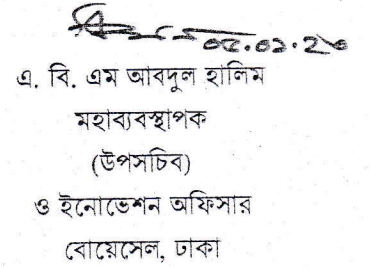 ০৫.০১.২০
এ. বি. এম আবদুল হালিম
মহাব্যবস্থাপক
(উপসচিব)
ও ইনোভেশন অফিসার
বোয়েসেল, ঢাকা